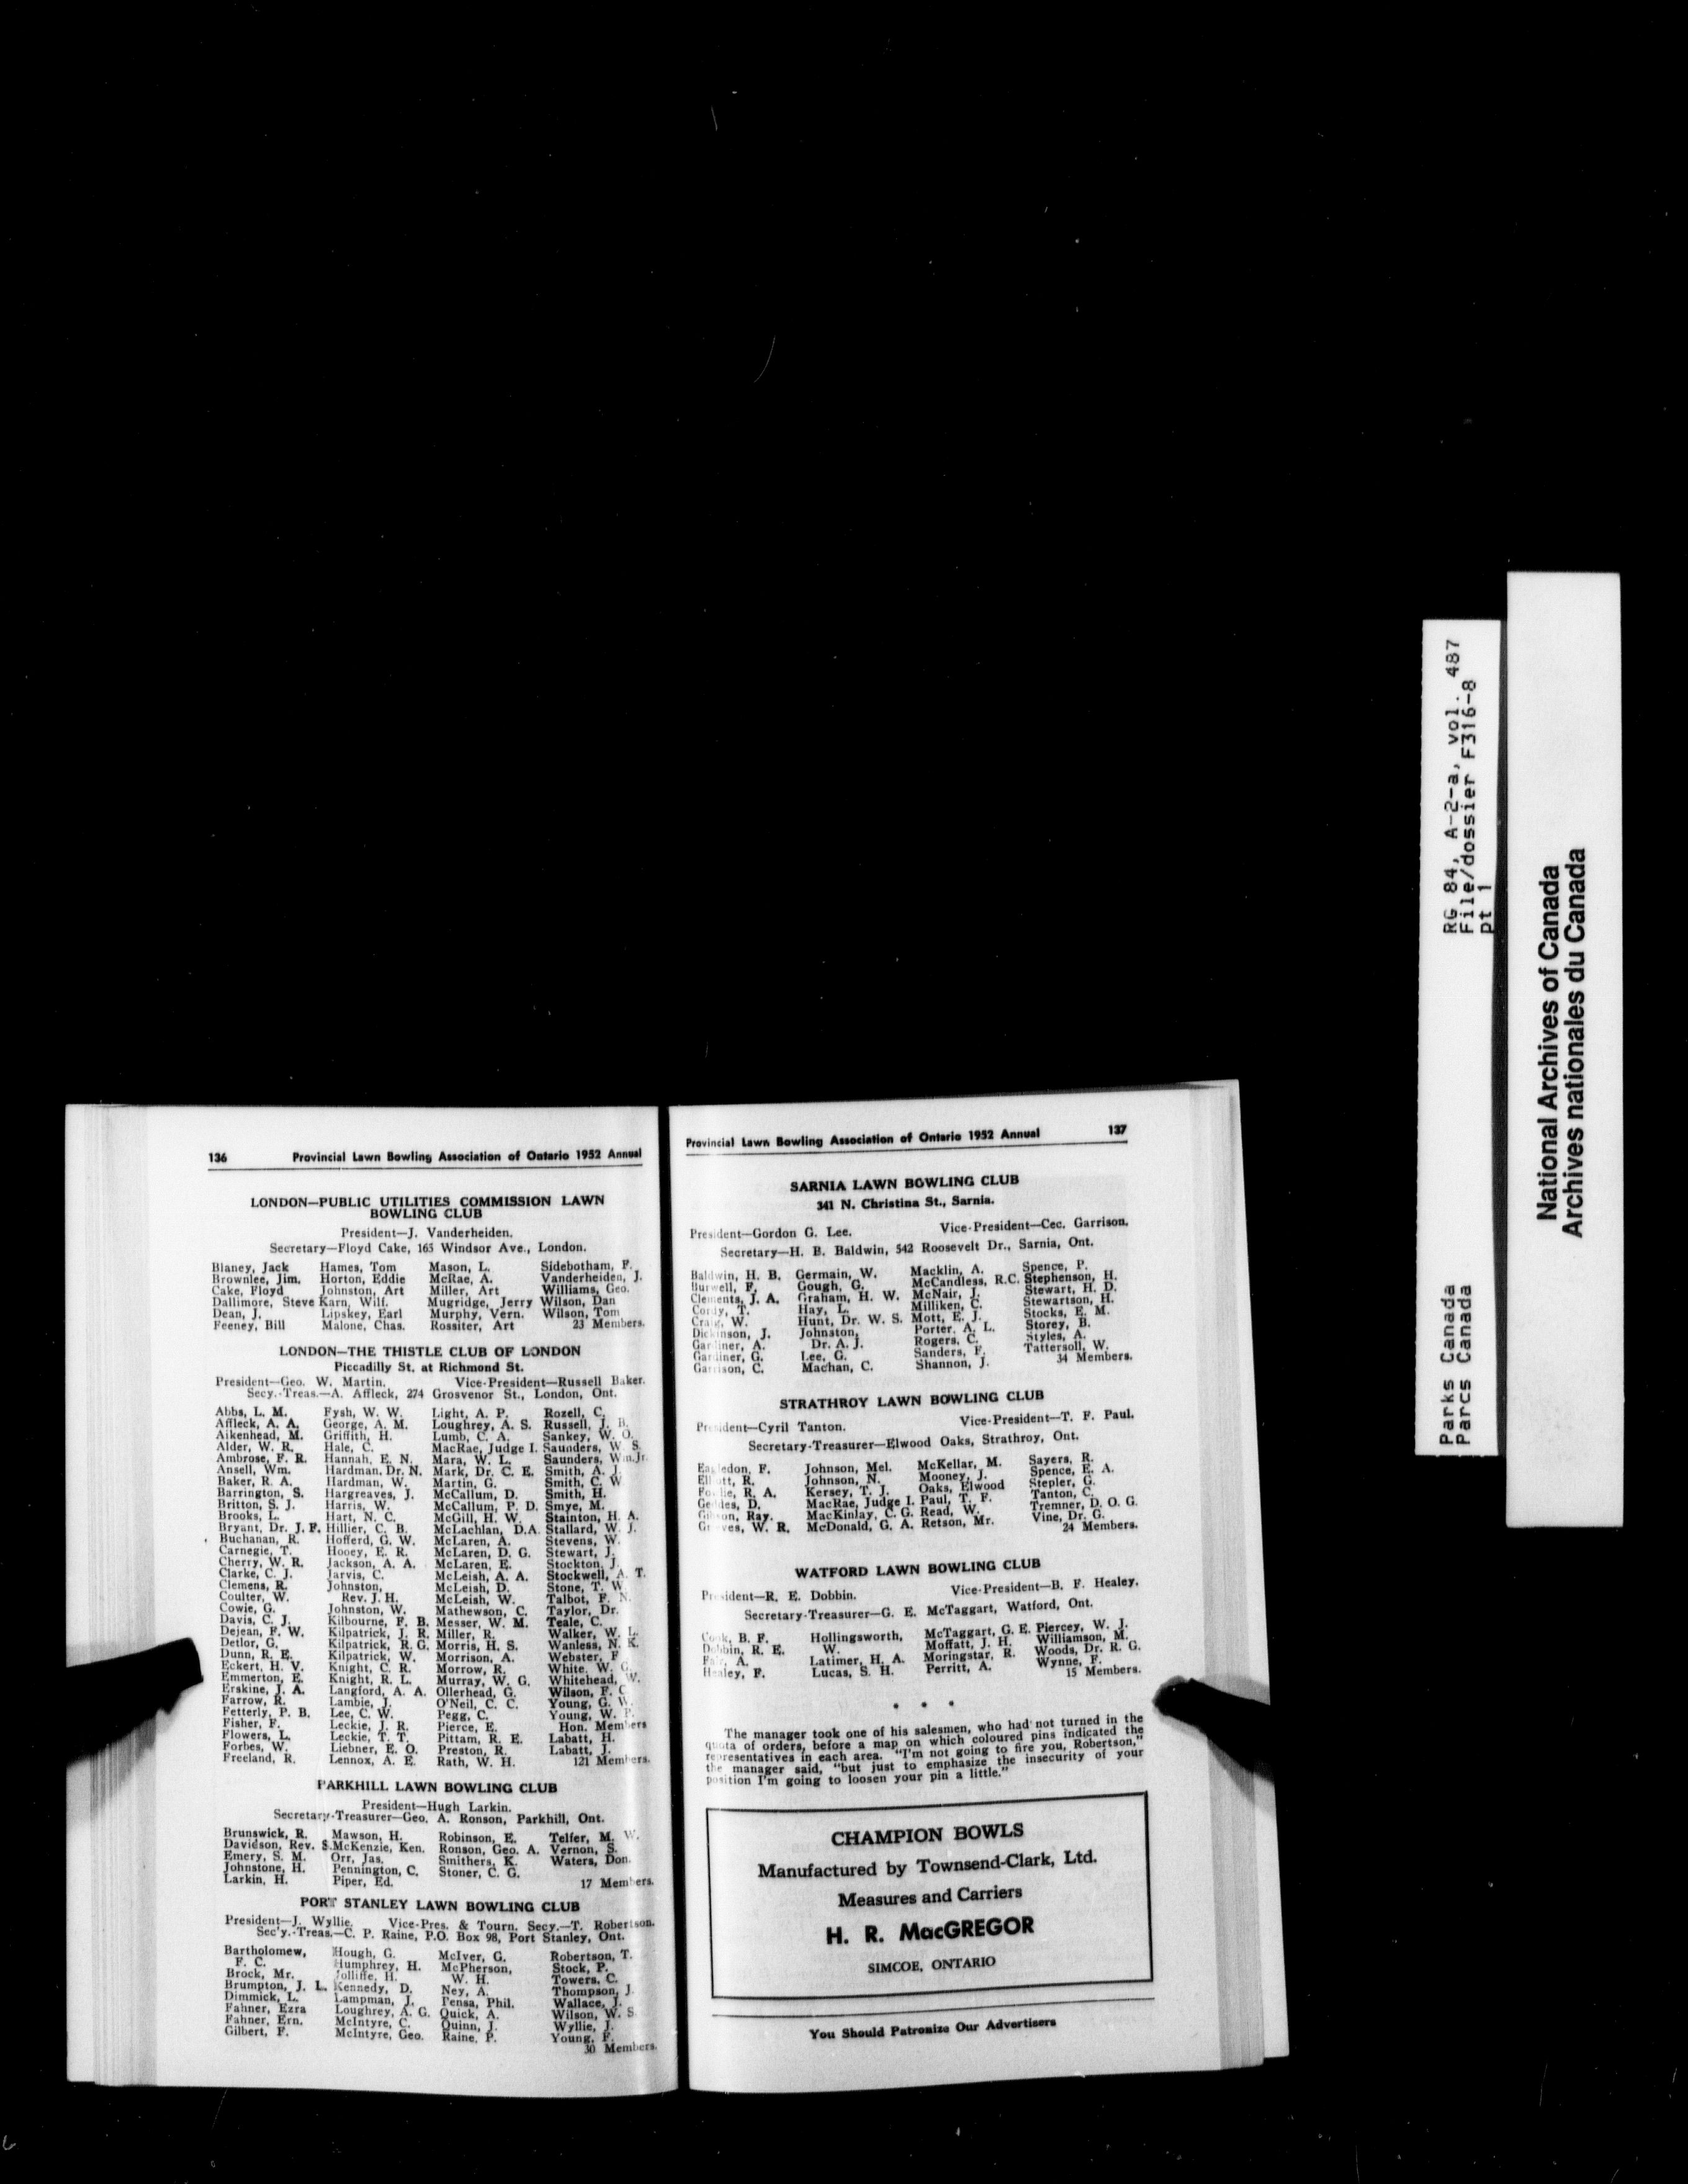 136 Provincial Lawn Bowling Association of Ontario 1952 Annual
LONDON—PUBLIC UTILITIES COMMISSION LAWN
BOWLING CLUB
President—J. Vanderheiden.
Secretary—Floyd Cake, 165 Windsor Ave., London.
Blaney, Jack Hames, Tom Mason, L. Sidebotham, F.
Brownlee, Jim. Horton, Eddie McRae, A. Vanderheiden, J.
Cake, Floyd Johnston, Art Miller, Art Williams, Geo.
Dallimore, Steve Karn, Wilf. Mugridge, Jerry Wilson, Dan
Dean, J. Lipskey, Earl Murphy, Vern. Wilson, Tom
Feeney, Bill Malone, Chas. Rossiter, Art 23 Members.
LONDON—THE THISTLE CLUB OF LONDON
Piccadilly St. at Richmond St.
President—Geo. W. Martin. Vice-President—Russell Baker.
Secy.-Treas.—A. Affleck, 274 Grosvenor St., London, Ont.
Abbs, L. M. Fysh, W. W. Light, A. P. Rozell, C.
Affleck, A. A. George, A. M. Loughrey, A. S. Russell, J. B.
Aikenhead, M. Griffith, H. Lumb, C. A. Sankey, W. O.
Alder, W. R. Hale, C. MacRae, Judge I. Saunders, W. S.
Ambrose, F. R. Hannah, E. N. Mara, W. L. Saunders, Wm.Jr.
Ansell, Wm. Hardman, Dr. N. Mark, Dr. C. E. Smith, A. J.
Baker, R. A. Hardman, W. Martin, G. Smith, C. W
Barrington, S. Hargreaves, J. McCallum, D. Smith, H.
Britton, S. J. Harris, W. McCallum, P. D. Smye, M.
Brooks, L. Hart, N. C. McGill, H. W. Stainton, H. A.
Bryant, Dr. J. F. Hillier, C. B. McLachlan, D.A. Stallard, W. J.
Buchanan, R. Hofferd, G. W. McLaren, A. Stevens, W.
Carnegie, T. Hooey, E. R. McLaren, D. G. Stewart, J.
Cherry, W. R. Jackson, A. A. McLaren, E. Stockton, J.
Clarke, C. J. Jarvis, C. McLeish, A. A. Stockwell, A. T.
Clemens, R. Johnston, McLeish, D. Stone, T. W
Coulter, W. Rev. J. H. McLeish, W. Talbot, F. N.
Cowie, G. Johnston, W. Mathewson, C. Taylor, Dr.
Davis, C. J. Kilbourne, F. B. Messer, W. M. Teale, C.
Dejean, F. W. Kilpatrick, J. R. Miller, R. Walker, W. L.
Detlor, G. Kilpatrick, R. G. Morris, H. S. Wanless, N. K.
Dunn, R. E. Kilpatrick, W. Morrison, A. Webster, F
Eckert, H. V. Knight, C. R. Morrow, R. White, W. G.
Emmerton, E. Knight, R. L. Murray, W. G. Whitehead, W.
Erskine, J. A. Langford, A. A. Ollerhead, G. Wilson, F. C
Farrow, R. Lambie, J. O'Neil, C. C. Young, G. W.
Fetterly, P. B. Lee, C. W. Pegg, C. Young, W. P.
Fisher, F. Leckie, J. R. Pierce, E. Hon. Members
Flowers, L. Leckie, T. T. Pittam, R. E. Labatt, H.
Forbes, W. Liebner, E. O. Preston, R. Labatt, J.
Freeland, R. Lennox, A. E. Rath, W. H. 121 Members.
PARKHILL LAWN BOWLING CLUB
President—Hugh Larkin.
Secretary-Treasurer—Geo. A. Ronson, Parkhill, Ont.
Brunswick, R. Mawson, H. Robinson, E. Telfer, M. W.
Davidson, Rev. S. McKenzie, Ken. Ronson, Geo. A. Vernon, S.
Emery, S. M. Orr, Jas. Smithers, K. Waters, Don.
Johnstone, H. Pennington, C. Stoner, C. G.
Larkin, H. Piper, Ed. 17 Members.
PORT STANLEY LAWN BOWLING CLUB
President—J. Wyllie. Vice-Pres. & Tourn. Secy.—T. Robertson.
Sec'y.-Treas.—C. P. Raine, P.O. Box 98, Port Stanley, Ont.
Bartholomew, Hough, G. McIver, G. Robertson, T.
F. C. Humphrey, H. McPherson, Stock, P.
Brock, Mr. Jolliffe, H. W. H. Towers, C.
Brumpton, J. L. Kennedy, D. Ney, A. Thompson, J.
Dimmick, L. Lampman, J. Pensa, Phil. Wallace, J.
Fahner, Ezra Loughrey, A. G. Quick, A. Wilson, W. S
Fahner, Ern. McIntyre, C. Quinn, J. Wyllie, J.
Gilbert, F. McIntyre, Geo. Raine, P. Young, F.
30 Members.
Provincial Lawn Bowling Association of Ontario 1952 Annual 137
SARNIA LAWN BOWLING CLUB
341 N. Christina St., Sarnia.
President—Gordon G. Lee. Vice-President—Cec. Garrison.
Secretary—H. B. Baldwin, 542 Roosevelt Dr., Sarnia, Ont.
Baldwin, H. B. Germain, W. Macklin, A. Spence, P.
Burwell, F. Gough, G. McCandless, R.C. Stephenson, H.
Clements, J. A. Graham, H. W. McNair, J. Stewart, H. D.
Cordy, T. Hay, L. Milliken, C. Stewartson, H.
Craig, W. Hunt, Dr. W. S. Mott, E. J. Stocks, E. M.
Dickinson, J. Johnston, Porter, A. L. Storey, B.
Gardiner, A. Dr. A. J. Rogers, C. Styles, A.
Gardiner, G. Lee, G. Sanders, F. Tattersoll, W.
Garrison, C. Machan, C. Shannon, J. 34 Members.
STRATHROY LAWN BOWLING CLUB
President—Cyril Tanton. Vice-President—T. F. Paul.
Secretary-Treasurer—Elwood Oaks, Strathroy, Ont.
Eagledon, F. Johnson, Mel. McKellar, M. Sayers, R.
Elliott, R. Johnson, N. Mooney, J. Spence, E. A.
R. A. Kersey, T. J. Oaks, Elwood Stepler, G.
Geddes, D. MacRae, Judge I. Paul, T. F. Tanton, C.
Gibson, Ray. MacKinlay, C. G. Read, W. Tremner, D. O. G.
W. R. McDonald, G. A. Retson, Mr. Vine, Dr. G.
24 Members.
WATFORD LAWN BOWLING CLUB
President—R. E. Dobbin. Vice-President—B. F. Healey.
Secretary-Treasurer—G. E. McTaggart, Watford, Ont.
Cook, B. F. Hollingsworth, McTaggart, G. E. Piercey, W. J.
Dobbin, R. E. W. Moffatt, J. H. Williamson, M.
Fair, A. Latimer, H. A. Moringstar, R. Woods, Dr. R. G.
Healey, F. Lucas, S. H. Perritt, A. Wynne, F.
15 Members.
• • •
The manager took one of his salesmen, who had not turned in the
quota of orders, before a map on which coloured pins indicated the
representatives in each area. "I'm not going to fire you, Robertson,"
the manager said, "but just to emphasize the insecurity of your
position I'm going to loosen your pin a little."
CHAMPION BOWLS
Manufactured by Townsend-Clark, Ltd.
Measures and Carriers
H. R. MacGREGOR
SIMCOE, ONTARIO
You Should Patronize Our Advertisers
Parks Canada
Parcs Canada
RG 84, A-2-a, vol. 487
File/dossier F316-8
pt 1
National Archives of Canada
Archives nationales du Canada